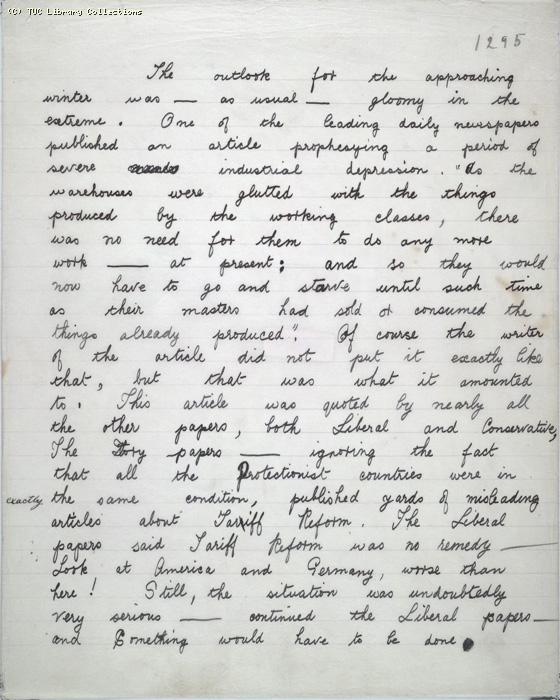 (C) TUC Library Collections
1295
The outlook for the approaching
winter was — as usual — gloomy in the
extreme. One of the leading daily newspapers
published an article prophesying a period of
severe industrial depression. "As the
warehouses were glutted with the things
produced by the working classes, there
was no need for them to do any more
work — at present; and so they would
now have to go and starve until such time
as their masters had sold or consumed the
things already produced". Of course the writer
of the article did not put it exactly like
that, but that was what it amounted
to. This article was quoted by nearly all
the other papers, both Liberal and Conservative,
The Tory papers — ignoring the fact
that all the Protectionist countries were in
exactly the same condition, published yards of misleading
articles about Tarriff Reform. The Liberal
papers said Tariff Reform was no remedy —
Look at America and Germany, worse than
here! Still, the situation was undoubtedly
very serious — continued the Liberal papers —
and Something would have to be done.